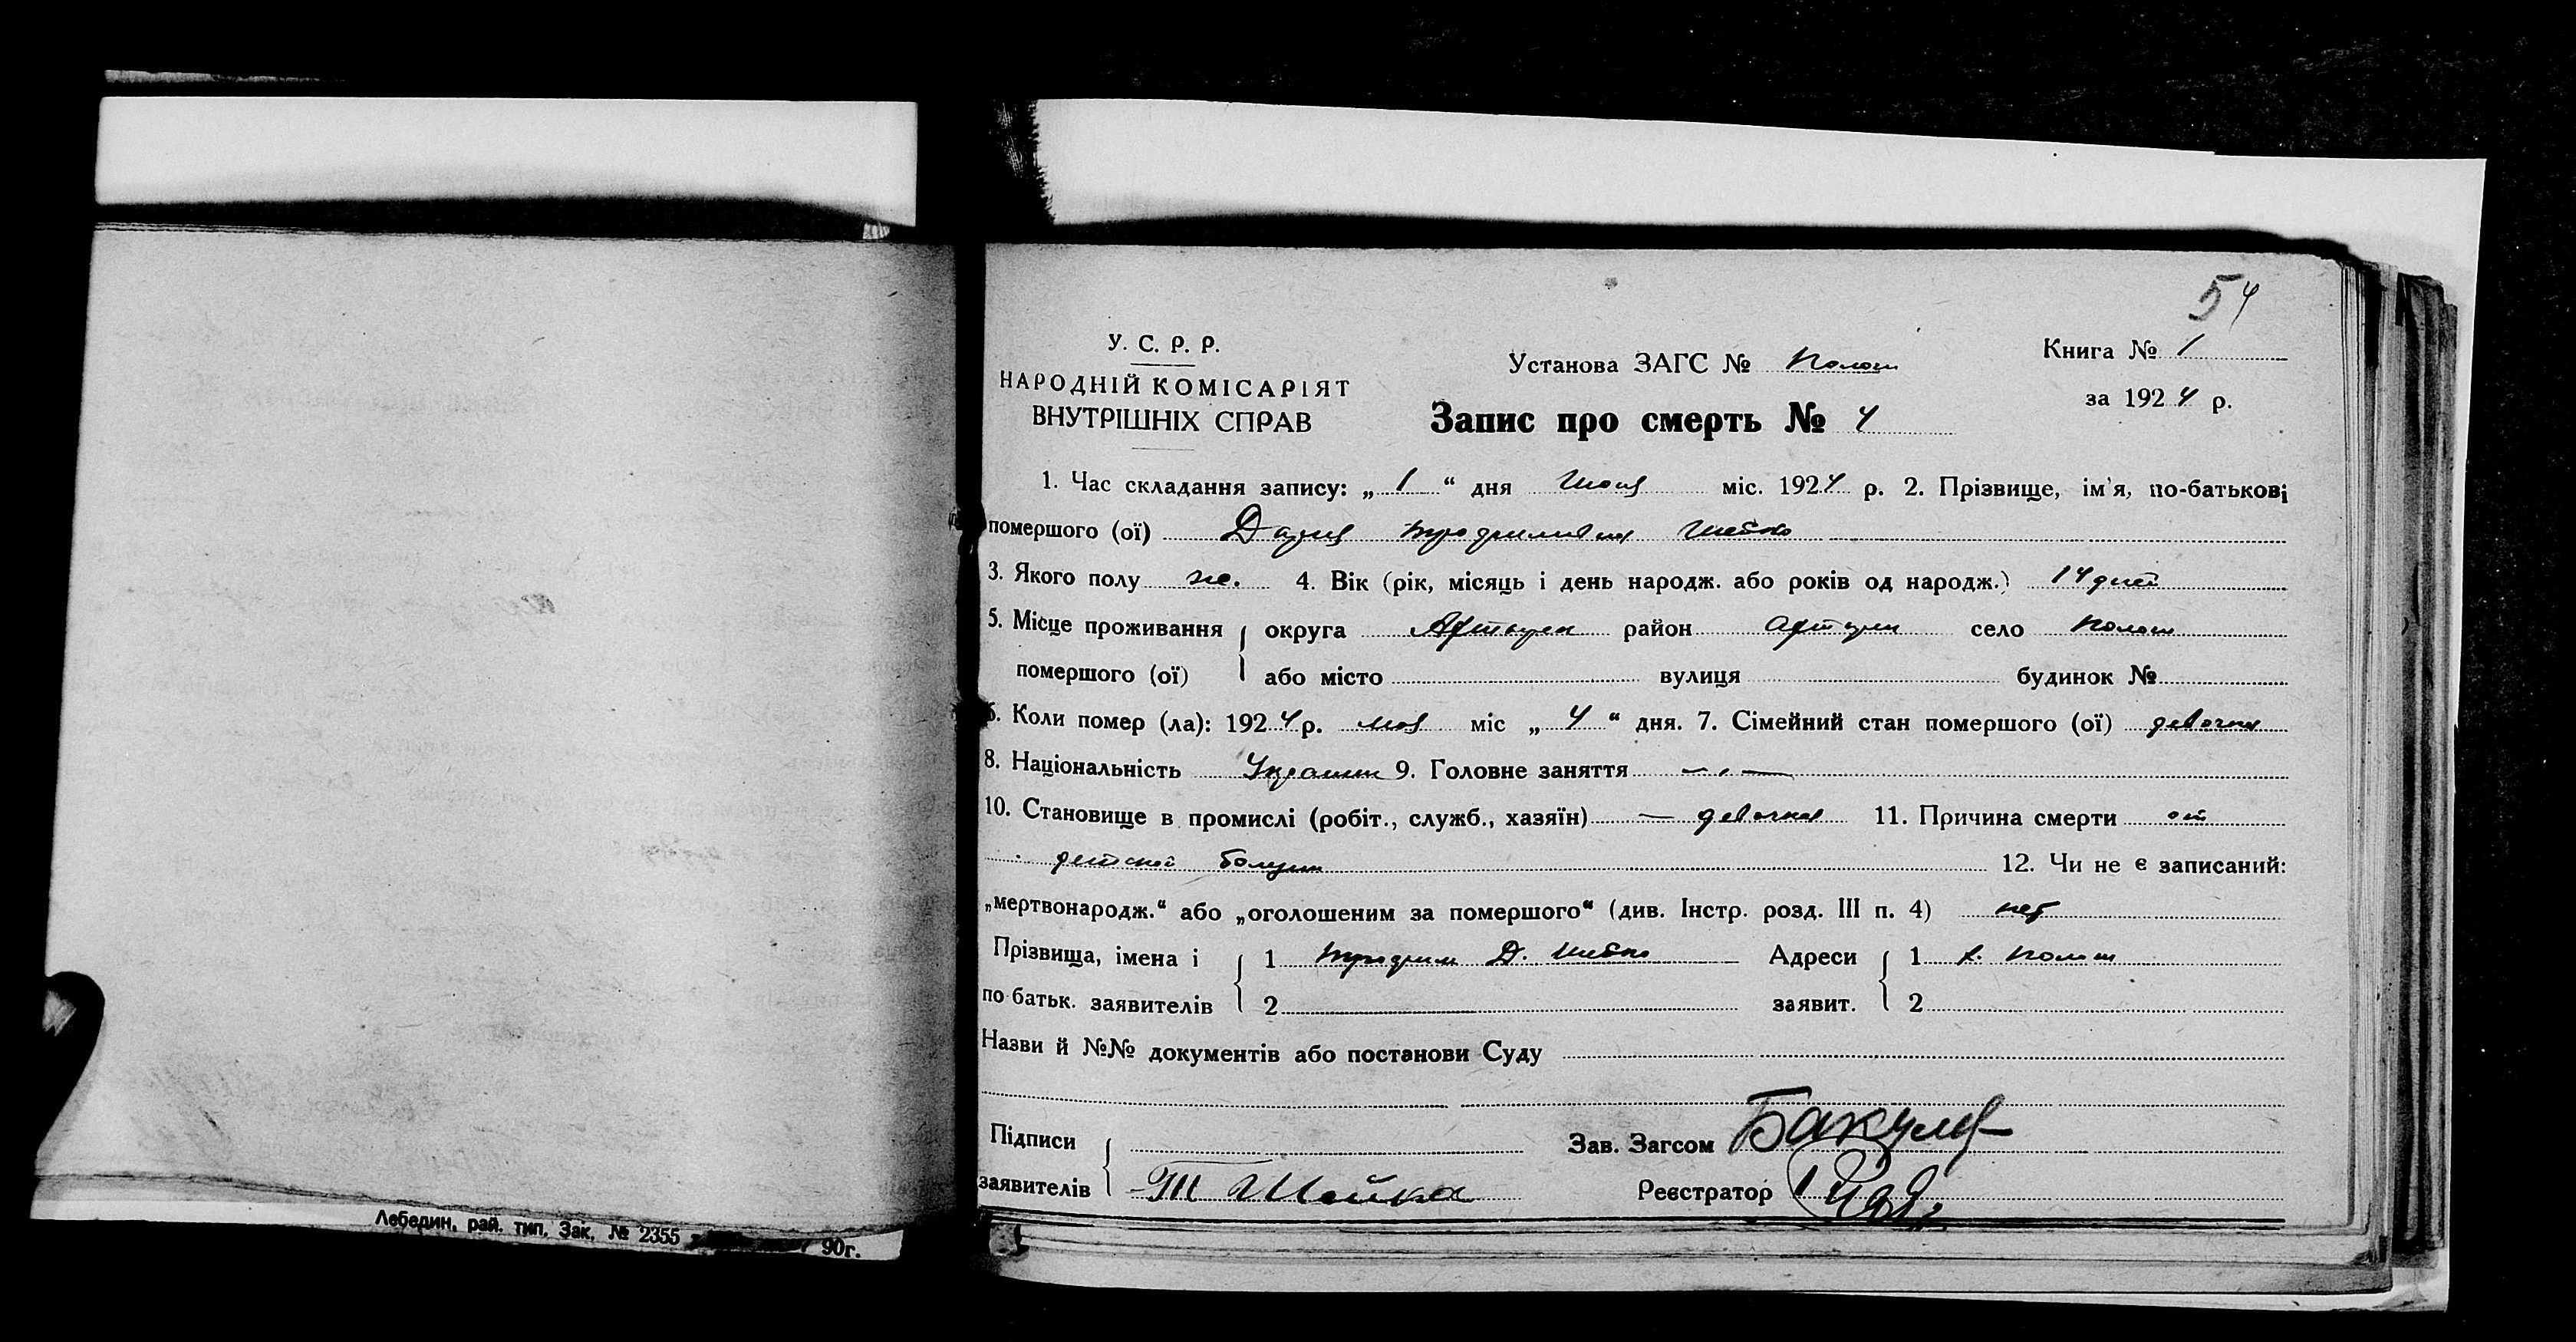 54
У. С. Р. Р.
НАРОДНІЙ КОМІСАРІЯТ
ВНУТРІШНІХ СПРАВ
Установа ЗАГС №
Книга № 1
за 1924 р.
Запис про смерть № 4
1. Час складання запису: „ 1 “ дня міс. 1924 р. 2. Прізвище, ім'я, по-батькові
помершого (ої)
3. Якого полу ж. 4. Вік (рік, місяць і день народж. або років од народж.) 14 дней
5. Місце проживання округа район село
помершого (ої) або місто вулиця будинок №
6. Коли помер (ла): 1924 р. мая міс „ 4 “ дня. 7. Сімейний стан помершого (ої) девочка
8. Національність Украин 9. Головне заняття
10. Становище в промислі (робіт., служб., хазяїн) — девочка 11. Причина смерти от
детской 12. Чи не є записаний:
„мертвонародж.“ або „оголошеним за помершого“ (див. Інстр. розд. III п. 4) нет
Прізвища, імена і 1 Д. Адреси 1
по батьк. заявителів 2 заявит. 2
Назви й №№ документів або постанови Суду
Підписи Зав. Загсом
заявителів Т Шейка Реєстратор
Лебедин, рай. тип. Зак. № 2355 90г.